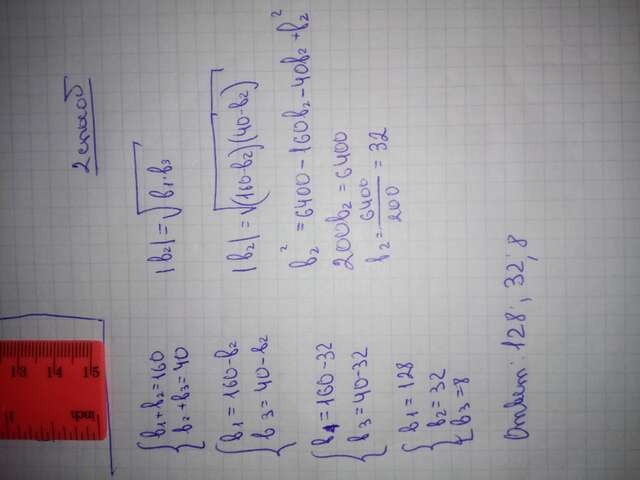 2 способ
{b₁+b₂=160
{b₂+b₃=40
|b₂|=√b₁·b₃
{b₁=160-b₂
{b₃=40-b₂
|b₂|=√(160-b₂)(40-b₂)
b₂²=6400-160b₂-40b₂+b₂²
{b₁=160-32
{b₃=40-32
200b₂=6400
b₂=6400/200=32
{b₁=128
{b₂=32
{b₃=8
Ответ: 128; 32; 8
13 14 15
inch
1